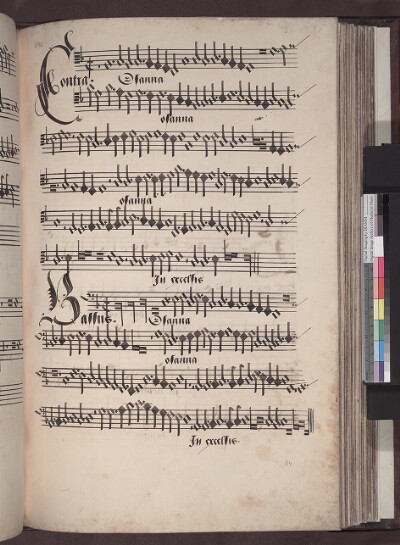 Contra.
Osanna
osanna
osanna
In excelsis
Bassus.
Osanna
osanna
In excelsis.